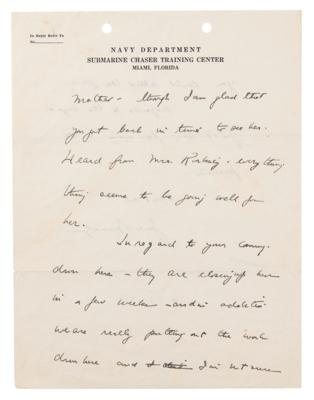 In Reply Refer To
No.
NAVY DEPARTMENT
SUBMARINE CHASER TRAINING CENTER
MIAMI, FLORIDA
Mother – though I am glad that
you got back in time to see her.
Heard from Mrs. – everything
thing seems to be going well for
her.
In regard to your coming
down here – they are closing up here
in a few weeks – and in addition
we are really putting out the work
down here and I I'm not sure